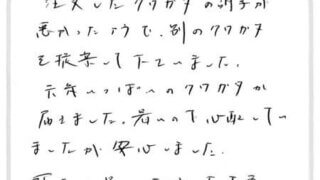 注文したクワガタの調子が
悪かったようで、別のクワガタ
を提案して下さいました。
元気いっぱいのクワガタが
届きました。暑いので心配してい
ましたが安心しました。